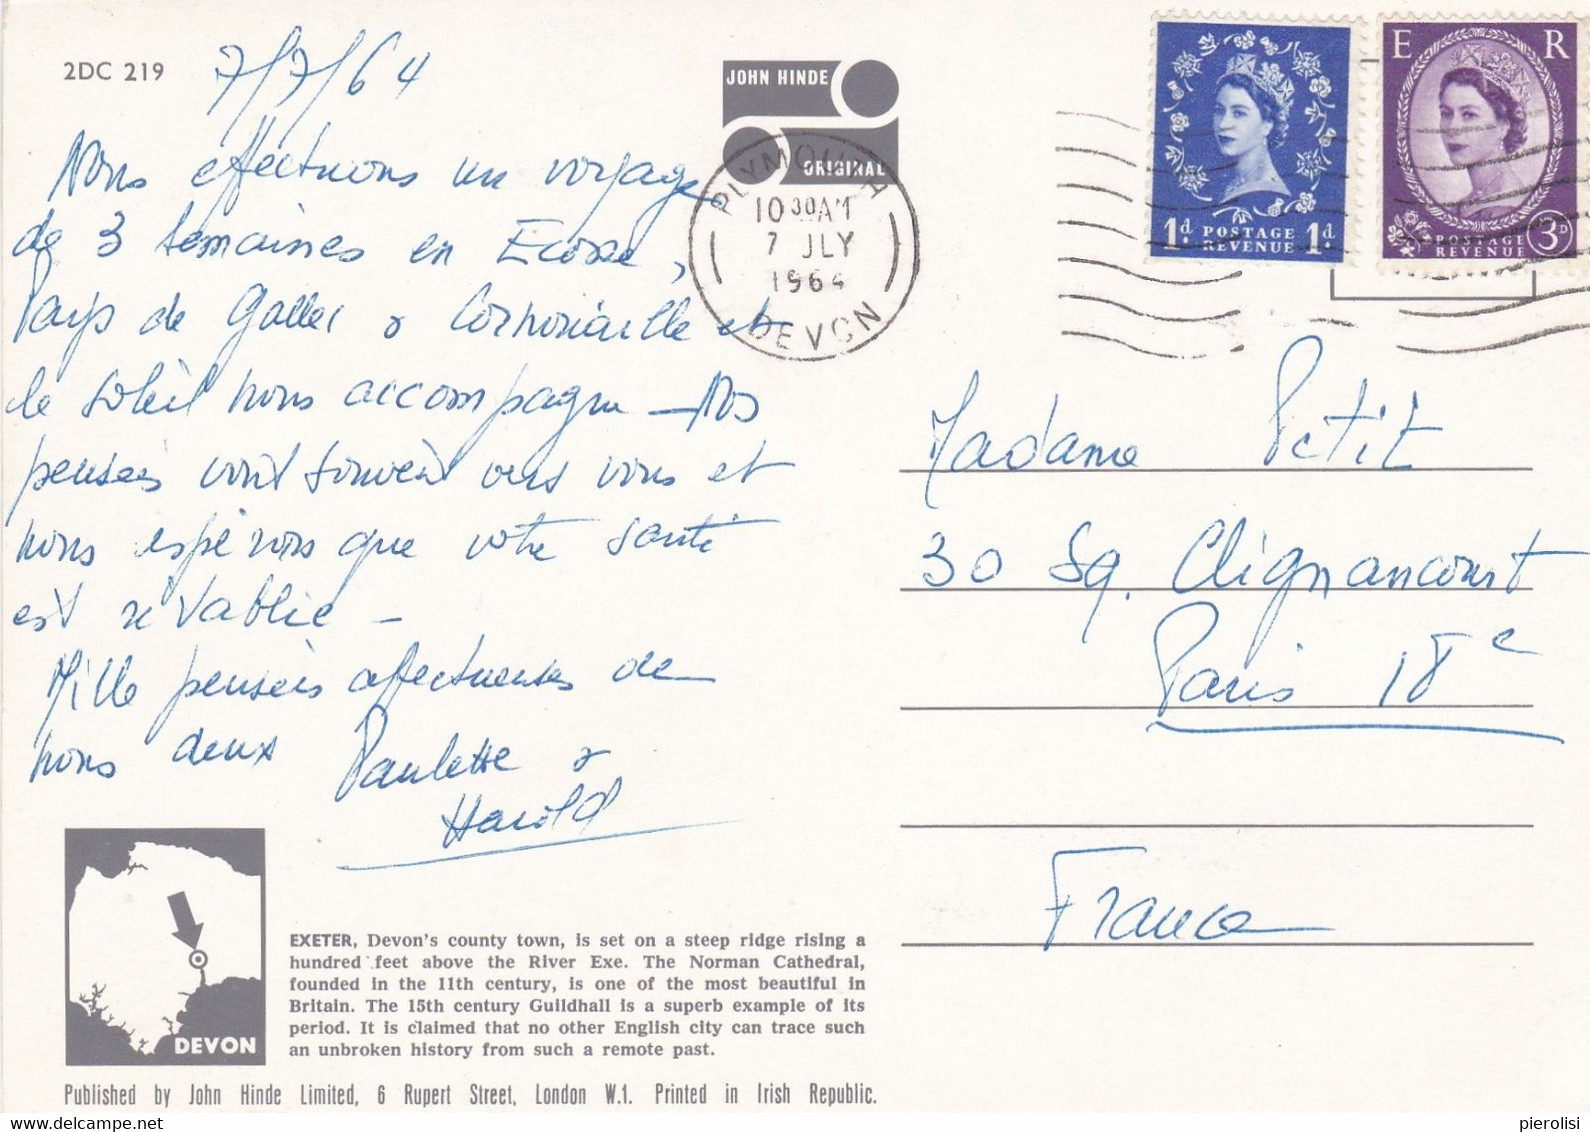 2DC 219
7/7/64
Nous effectuons un voyage
de 3 semaines en Ecosse,
Pays de Galles & Cornouaille et
le soleil nous accompagne - Nos
pensées vont souvent vers vous et
nous espérons que votre santé
est rétablie -
Mille pensées affectueuses de
nous deux Paulette &
Harold
JOHN HINDE
ORIGINAL
PLYMOUTH
10 30AM
7 JLY
1964
DEVON
1d. POSTAGE REVENUE 1d.
E R
POSTAGE REVENUE 3D
Madame Petit
30 Sq. Clignancourt
Paris 18e
France
DEVON
EXETER, Devon's county town, is set on a steep ridge rising a
hundred feet above the River Exe. The Norman Cathedral,
founded in the 11th century, is one of the most beautiful in
Britain. The 15th century Guildhall is a superb example of its
period. It is claimed that no other English city can trace such
an unbroken history from such a remote past.
Published by John Hinde Limited, 6 Rupert Street, London W.1. Printed in Irish Republic.
www.delcampe.net
pierolisi